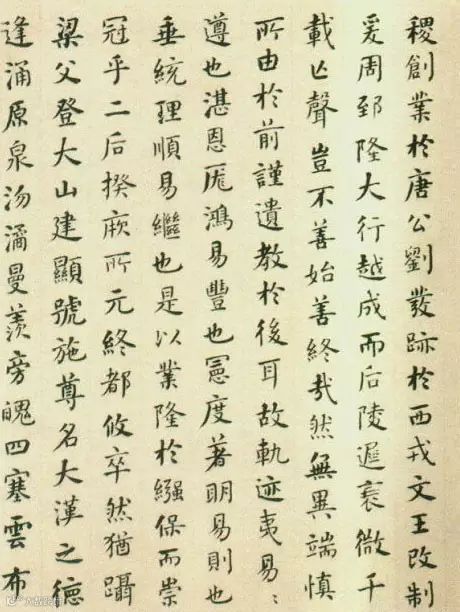 稷創業於唐公劉發跡於西戎文王改制
爰周郅隆大行越成而后陵遲衰微千
載亡聲豈不善始善終哉然無異端慎
所由於前謹遺教於後耳故軌迹夷易〻
遵也湛恩厖鴻易豐也憲度著明易則也
垂統理順易繼也是以業隆於繦保而崇
冠乎二后揆厥所元終都攸卒然猶躡
梁父登大山建顯號施尊名大漢之德
逢涌原泉沕潏曼羨旁魄四塞雲布